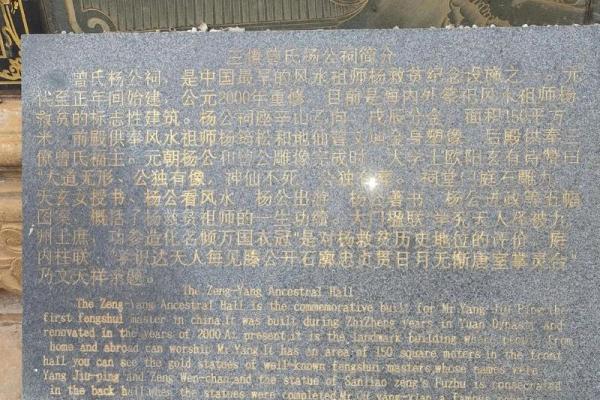 三僚曾氏杨公祠简介
曾氏杨公祠，是中国最早的风水祖师杨救贫纪念设施之一，元
代至正年间始建，公元2000年重修，目前是海内外祭祀风水祖师杨
救贫的标志性建筑。杨公祠座辛山乙向，戊辰分金，面积150平方
米，前殿供奉风水祖师杨筠松和地仙曾文辿金身塑像，后殿供奉三
僚曾氏福主。元朝杨公和曾公雕像完成时，大学士欧阳玄有诗赞曰
"大道无形，公独有像，神仙不死，公独 祠堂 庭石雕九
天玄女授书、杨公看风水、杨公出游、杨公著书、杨公进政等五幅
图案，概括了杨救贫祖师的一生功绩，大门楹联"学究天人泽被九
州土庶，功参造化名倾万国衣冠"是对杨救贫历史地位的评价，
内柱联，
乃文天祥亲题。
The Zeng-Yang Ancestral Hall
The Zeng-Yang Ancestral Hall is the commemorative built for Mr Yang Jiu the
first fengshui master in china.It was built during ZhiZheng years in Yuan Dynasty and
renovated in the years of 2000.At present,it is the landmark building where people from
home and abroad can worship Mr.Yang.It has an area of 150 square meters.in the front
hall you can see the gold statues of well-known fengshui masters,whose names were
Yang Jiu-ping and Zeng Wen-chan,and the statue of Sanliao zeng's Fuzhu is consecrated
in the back hall.When the statues were completed,Mr yang-xian,a famous